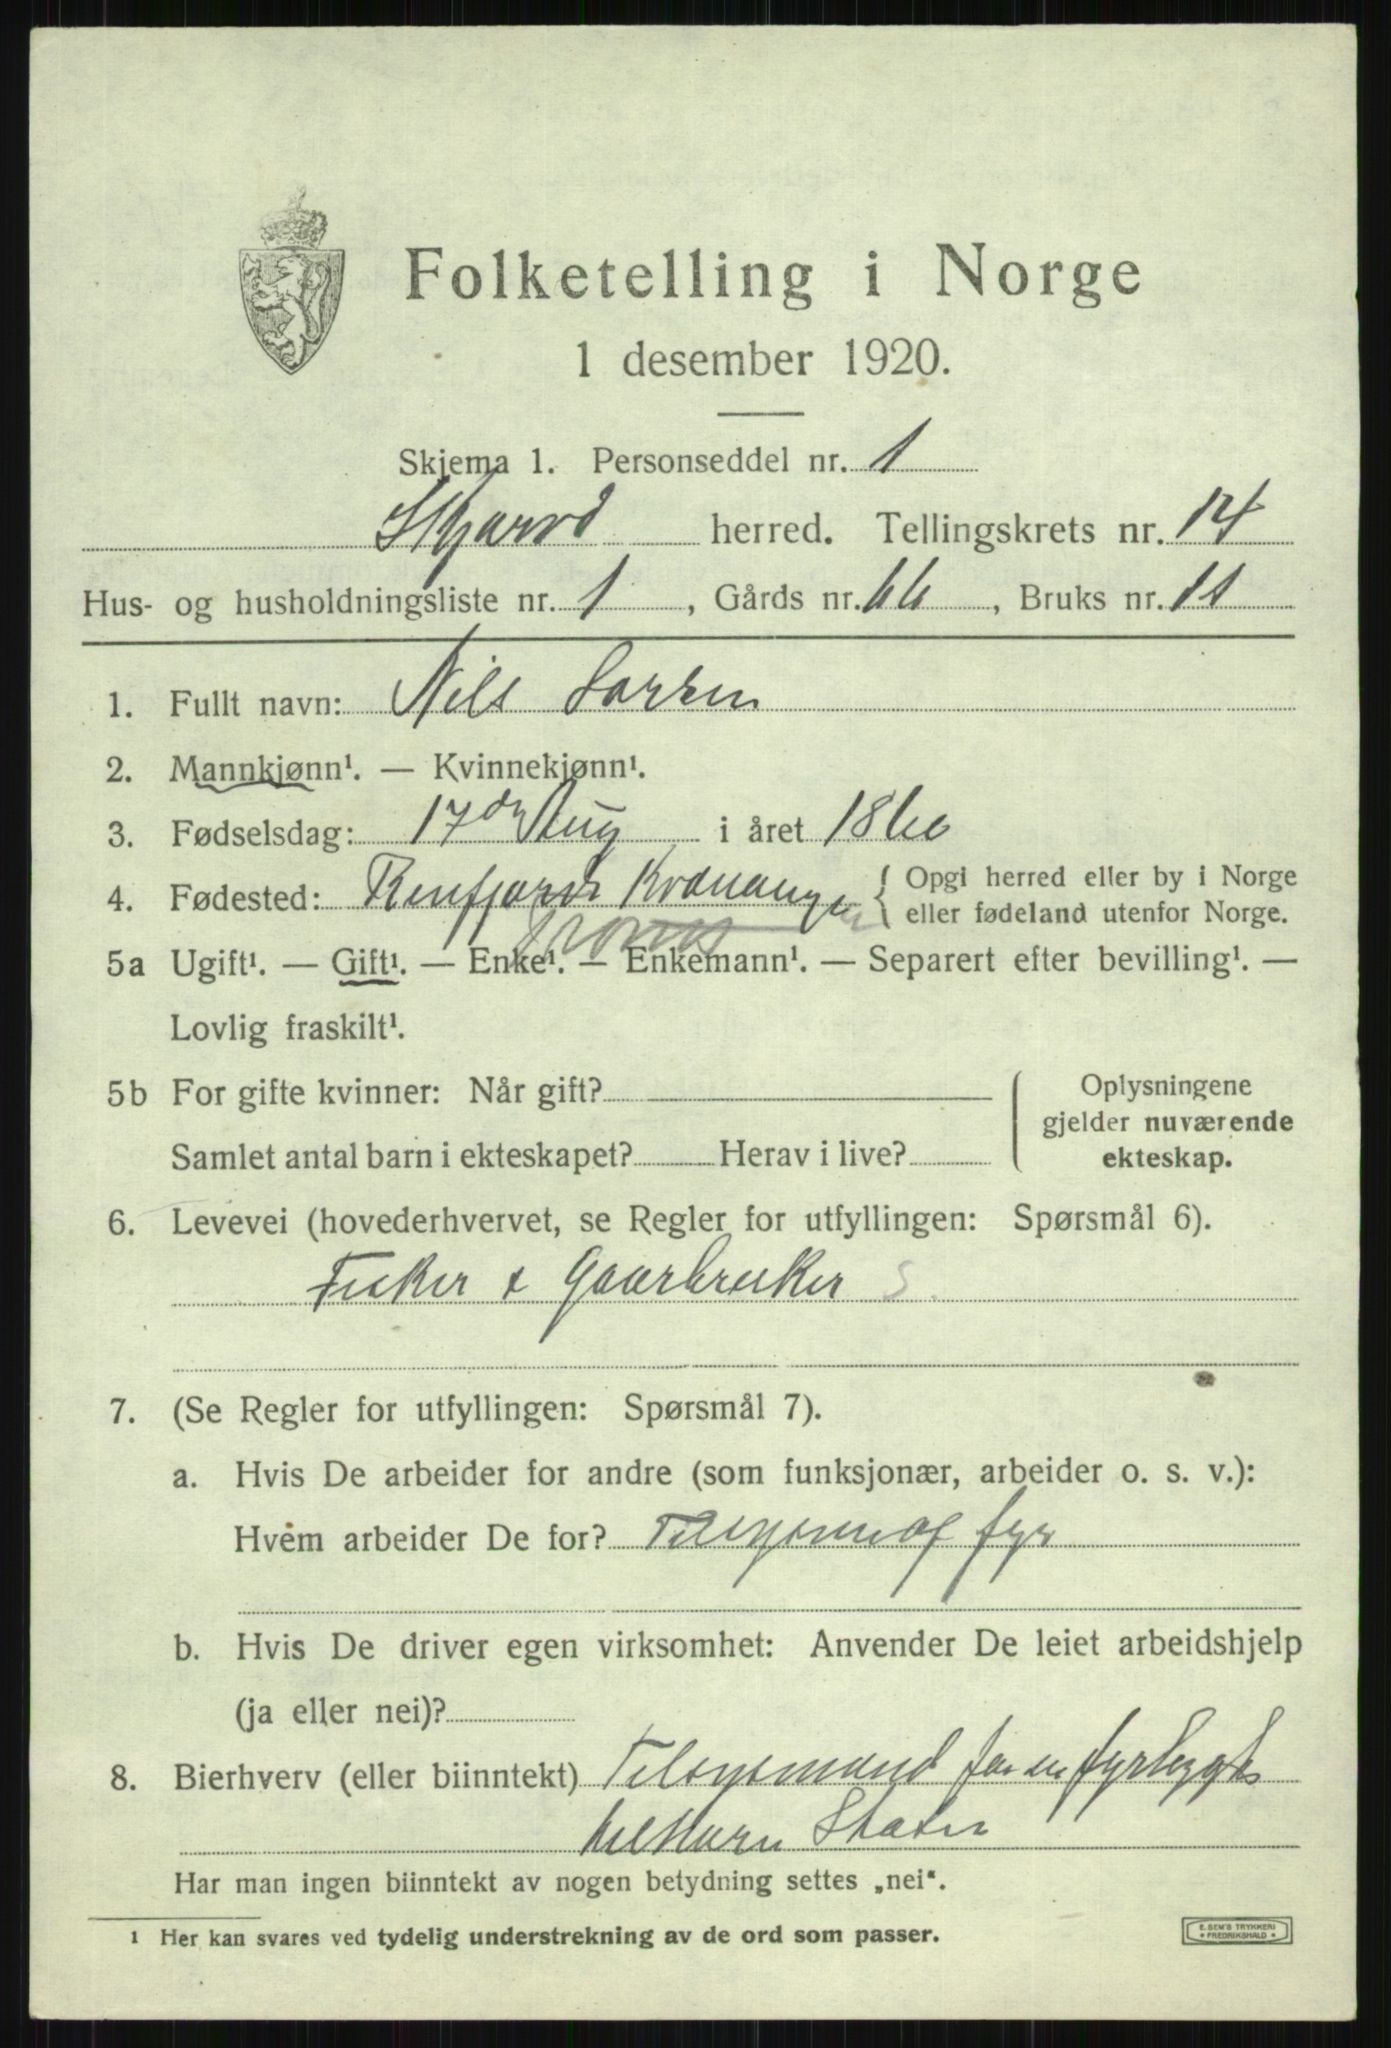 Folketelling i Norge
1 desember 1920.
Skjema 1. Personseddel nr. 1
Skjervø herred. Tellingskrets nr. 14
Hus- og husholdningsliste nr. 1, Gårds nr. 66, Bruks nr. 11
1. Fullt navn: Nils Larsen
2. Mannkjønn¹. — Kvinnekjønn¹.
3. Fødselsdag: 17de Aug i året 1860
4. Fødested: Kvænangen { Opgi herred eller by i Norge
eller fødeland utenfor Norge.
Troms
5a Ugift¹. — Gift¹. — Enke¹. — Enkemann¹. — Separert efter bevilling¹. —
Lovlig fraskilt¹.
5b For gifte kvinner: Når gift?
Samlet antal barn i ekteskapet? Herav i live?
Oplysningene
gjelder nuværende
ekteskap.
6. Levevei (hovederhvervet, se Regler for utfyllingen: Spørsmål 6).
Fisker & Gaarbruker S.
7. (Se Regler for utfyllingen: Spørsmål 7).
a. Hvis De arbeider for andre (som funksjonær, arbeider o. s. v.):
Hvem arbeider De for? fyr
b. Hvis De driver egen virksomhet: Anvender De leiet arbeidshjelp
(ja eller nei)?
8. Bierhverv (eller biinntekt) Tilsynsmand for en fyrlygte
tilhører Staten
Har man ingen biinntekt av nogen betydning settes „nei“.
¹ Her kan svares ved tydelig understrekning av de ord som passer.
E. SEM'S TRYKKERI
FREDRIKSHALD